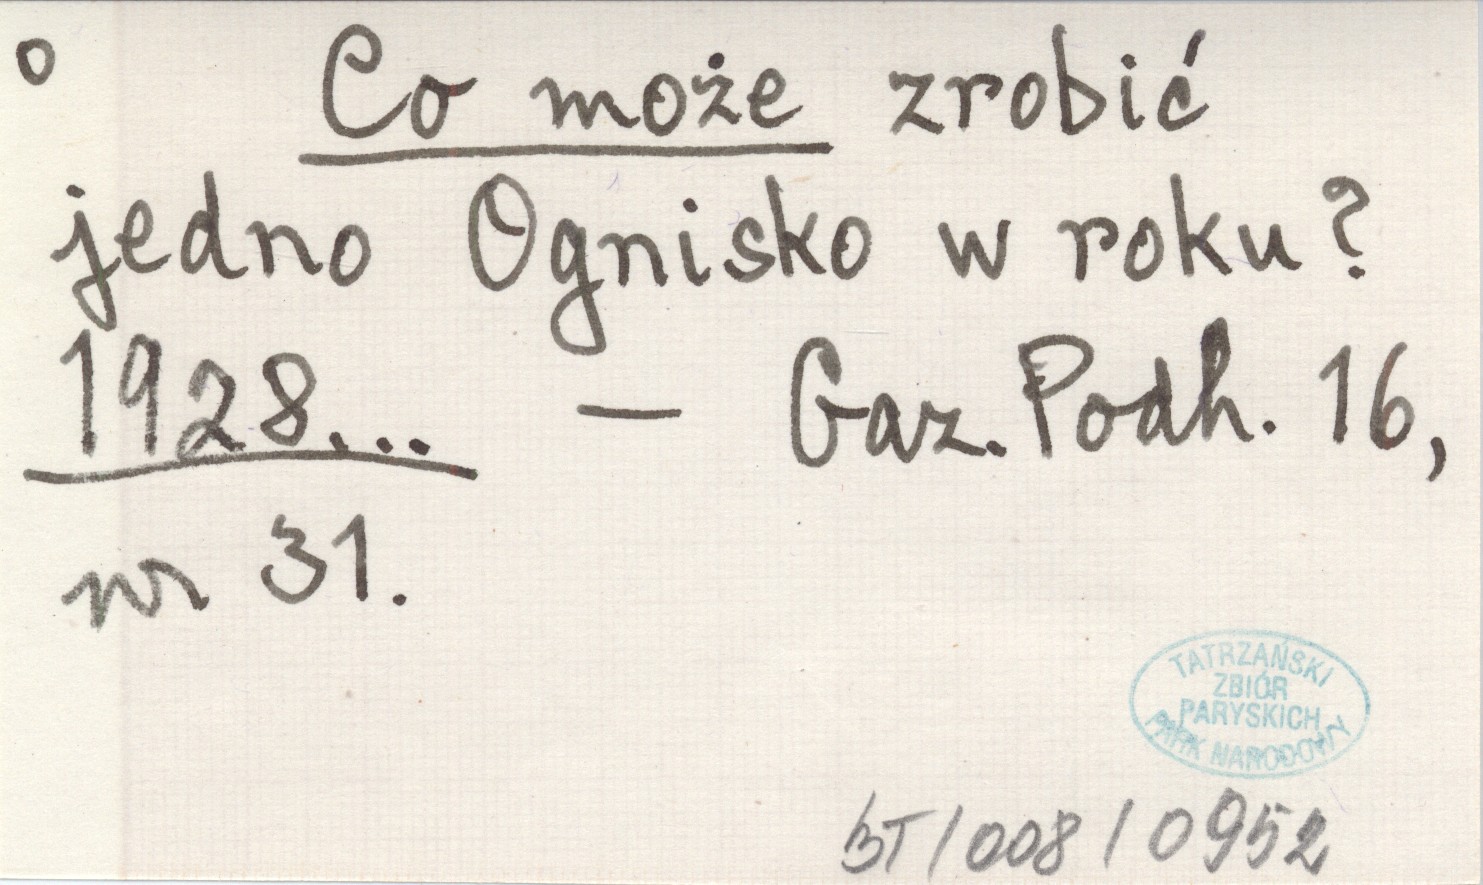 o Co może zrobić
jedno Ognisko w roku?
1928... — Gaz. Podh. 16,
nr 31.
TATRZAŃSKI
ZBIÓR
PARYSKICH
PARK NARODOWY
BT/008/0952